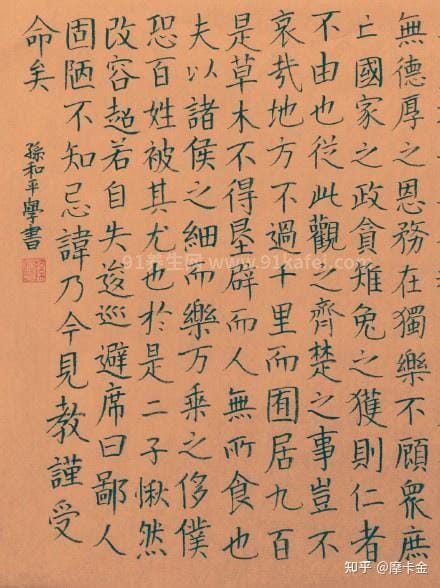 無德厚之恩務在獨樂不顧衆庶
亡國家之政貪雉兔之獲則仁者
不由也從此觀之齊楚之事豈不
哀㦲地方不過千里而囿居九百
是草木不得墾辟而人無所食也
夫以諸侯之細而樂万乘之侈僕
恐百姓被其尤也於是二子愀然
改容超若自失逡巡避席曰鄙人
固陋不知忌諱乃今見教謹受
命矣
孫和平學書
91养生网 www.91kafei.com
知乎 @摩卡金